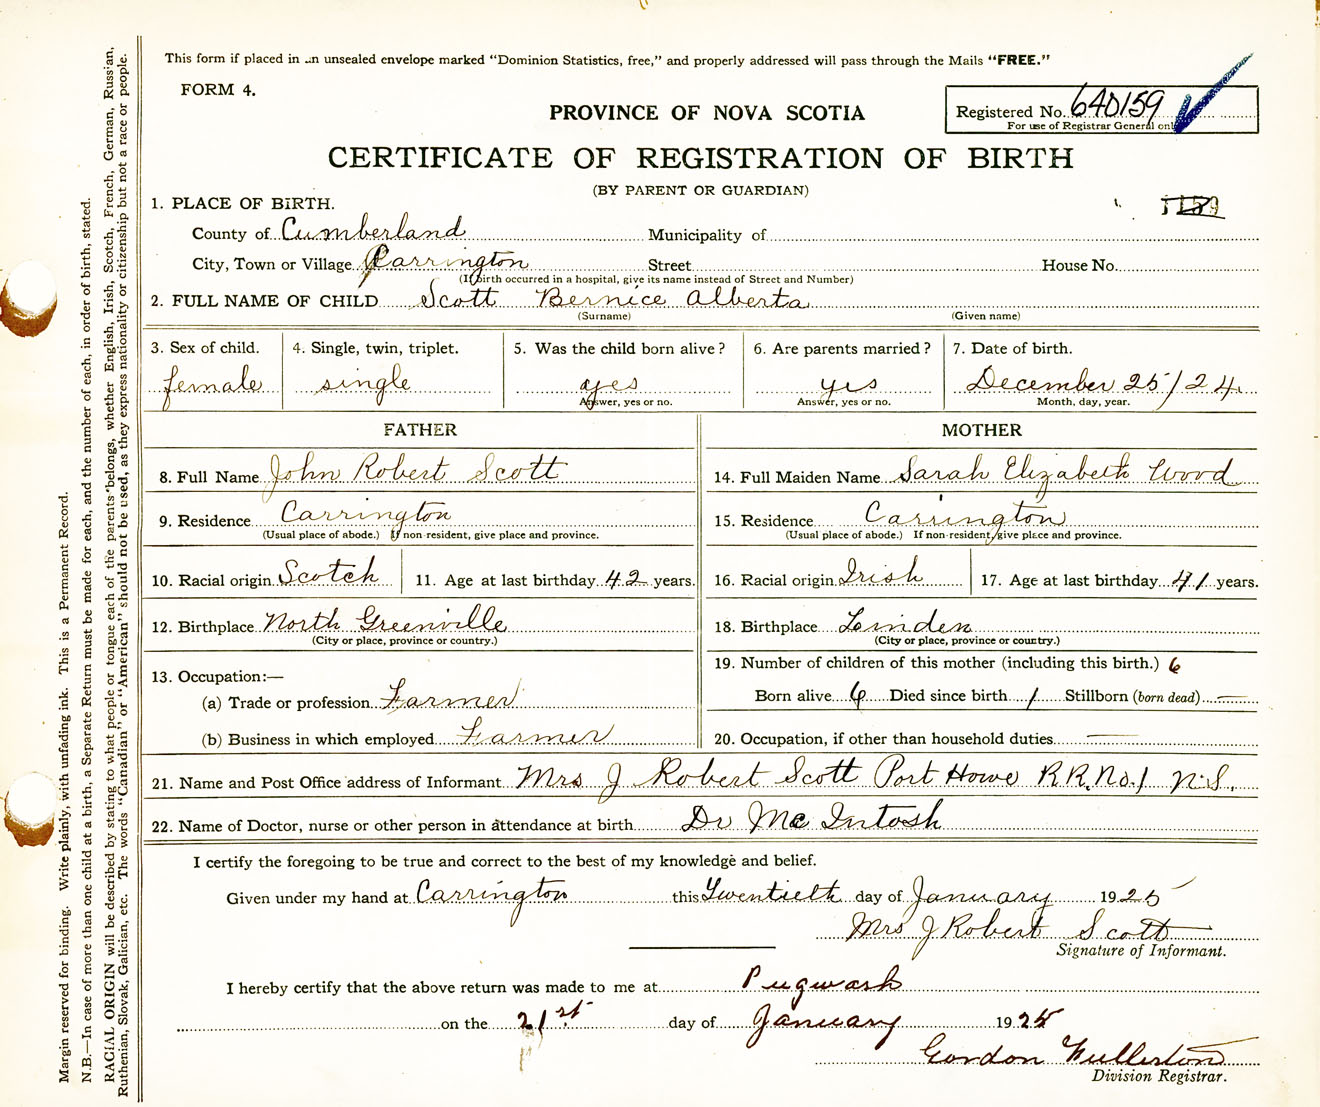 This form if placed in an unsealed envelope marked "Dominion Statistics, free," and properly addressed will pass through the Mails "FREE."
FORM 4.
PROVINCE OF NOVA SCOTIA
Registered No. 640159
For use of Registrar General only
CERTIFICATE OF REGISTRATION OF BIRTH
(BY PARENT OR GUARDIAN)
1. PLACE OF BIRTH.
County of Cumberland Municipality of
City, Town or Village Carrington Street House No.
(If birth occurred in a hospital, give its name instead of Street and Number)
2. FULL NAME OF CHILD Scott Bernice Alberta
(Surname) (Given name)
3. Sex of child. 4. Single, twin, triplet. 5. Was the child born alive? 6. Are parents married? 7. Date of birth.
female single yes yes December 25/24
Answer, yes or no. Answer, yes or no. Month, day, year.
FATHER MOTHER
8. Full Name John Robert Scott 14. Full Maiden Name Sarah Elizabeth Wood
9. Residence Carrington 15. Residence Carrington
(Usual place of abode.) If non-resident, give place and province. (Usual place of abode.) If non-resident, give place and province.
10. Racial origin Scotch 11. Age at last birthday 42 years. 16. Racial origin Irish 17. Age at last birthday 41 years.
12. Birthplace North Greenville 18. Birthplace Linden
(City or place, province or country.) (City or place, province or country.)
13. Occupation:— 19. Number of children of this mother (including this birth.) 6
(a) Trade or profession Farmer Born alive 6 Died since birth 1 Stillborn (born dead) —
(b) Business in which employed Farmer 20. Occupation, if other than household duties —
21. Name and Post Office address of Informant Mrs J Robert Scott Port Howe R.R. No. 1 N.S.
22. Name of Doctor, nurse or other person in attendance at birth Dr McIntosh
I certify the foregoing to be true and correct to the best of my knowledge and belief.
Given under my hand at Carrington this Twentieth day of January 1925
Mrs J Robert Scott
Signature of Informant.
I hereby certify that the above return was made to me at Pugwash
on the 21st day of January 1925
Gordon Fullerton
Division Registrar.
Margin reserved for binding. Write plainly, with unfading ink. This is a Permanent Record.
N.B.—In case of more than one child at a birth, a Separate Return must be made for each, and the number of each, in order of birth, stated.
RACIAL ORIGIN will be described by stating to what people or tongue each of the parents belongs, whether English, Irish, Scotch, French, German, Russian,
Ruthenian, Slovak, Galician, etc. The words "Canadian" or "American" should not be used, as they express nationality or citizenship but not a race or people.